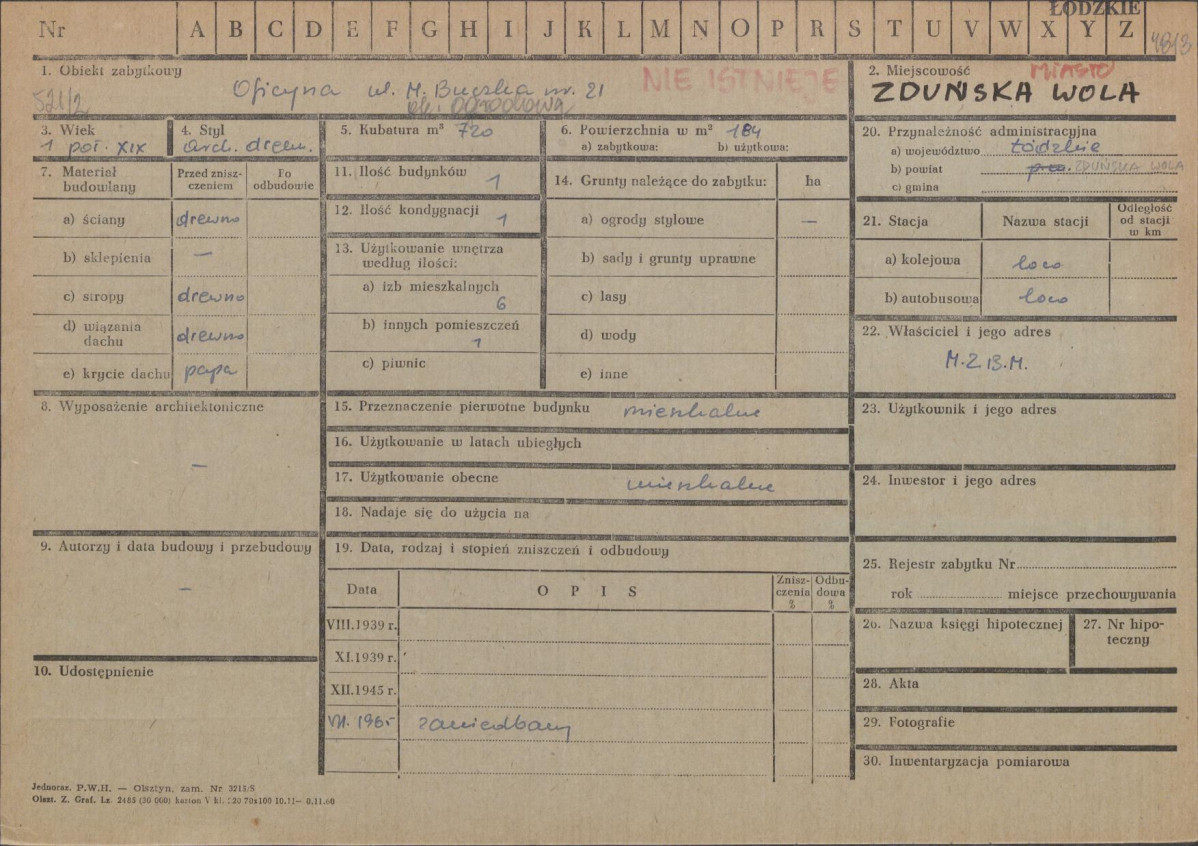 ŁÓDZKIE
Nr A B C D E F G H I J K L M N O P R S T U V W X Y Z
1. Obiekt zabytkowy
521/2
Oficyna ul. M. Buczka nr. 21
NIE ISTNIEJE
2. Miejscowość
MIASTO
ZDUŃSKA WOLA
3. Wiek
1 poł. XIX
4. Styl
arch. drewn.
5. Kubatura m³ 720
6. Powierzchnia w m² 184
a) zabytkowa: b) użytkowa:
20. Przynależność administracyjna
a) województwo Łódzkie
b) powiat ZDUŃSKA WOLA
c) gmina
7. Materiał budowlany
Przed zniszczeniem
Po odbudowie
a) ściany drewno
b) sklepienia —
c) stropy drewno
d) wiązania dachu drewno
e) krycie dachu papa
11. Ilość budynków 1
12. Ilość kondygnacji 1
13. Użytkowanie wnętrza
według ilości:
a) izb mieszkalnych 6
b) innych pomieszczeń 1
c) piwnic
14. Grunty należące do zabytku: ha
a) ogrody stylowe —
b) sady i grunty uprawne
c) lasy
d) wody
e) inne
21. Stacja
Nazwa stacji
Odległość
od stacji
w km
a) kolejowa loco
b) autobusowa loco
22. Właściciel i jego adres
M.Z.B.M.
8. Wyposażenie architektoniczne
—
15. Przeznaczenie pierwotne budynku mieszkalne
16. Użytkowanie w latach ubiegłych
17. Użytkowanie obecne mieszkalne
18. Nadaje się do użycia na
23. Użytkownik i jego adres
24. Inwestor i jego adres
9. Autorzy i data budowy i przebudowy
—
19. Data, rodzaj i stopień zniszczeń i odbudowy
Data
OPIS
Znisz-
czenia
%
Odbu-
dowa
%
VIII.1939 r.
XI.1939 r.
XII.1945 r.
VII. 1965 zaniedbany
25. Rejestr zabytku Nr
rok miejsce przechowywania
26. Nazwa księgi hipotecznej
27. Nr hipo-
teczny
10. Udostępnienie
28. Akta
29. Fotografie
30. Inwentaryzacja pomiarowa
Jednoraz. P.W.H. — Olsztyn, zam. Nr 3215/S
Olszt. Z. Graf. Lz. 2485 (30 000) karton V kl. 220 70x100 10.11— 0.11.60